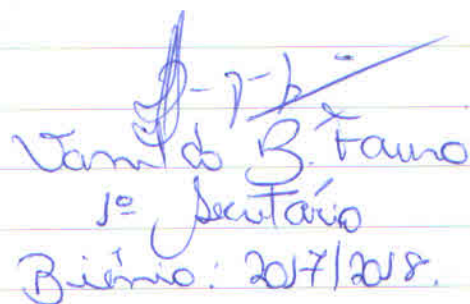 Vanildo B. Fauno
1º Secutário
Biênio: 2017/2018.